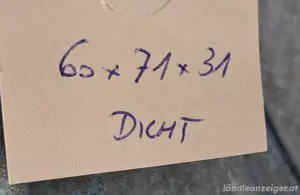 60 x 71 x 31
DICHT
ländleanzeiger.at